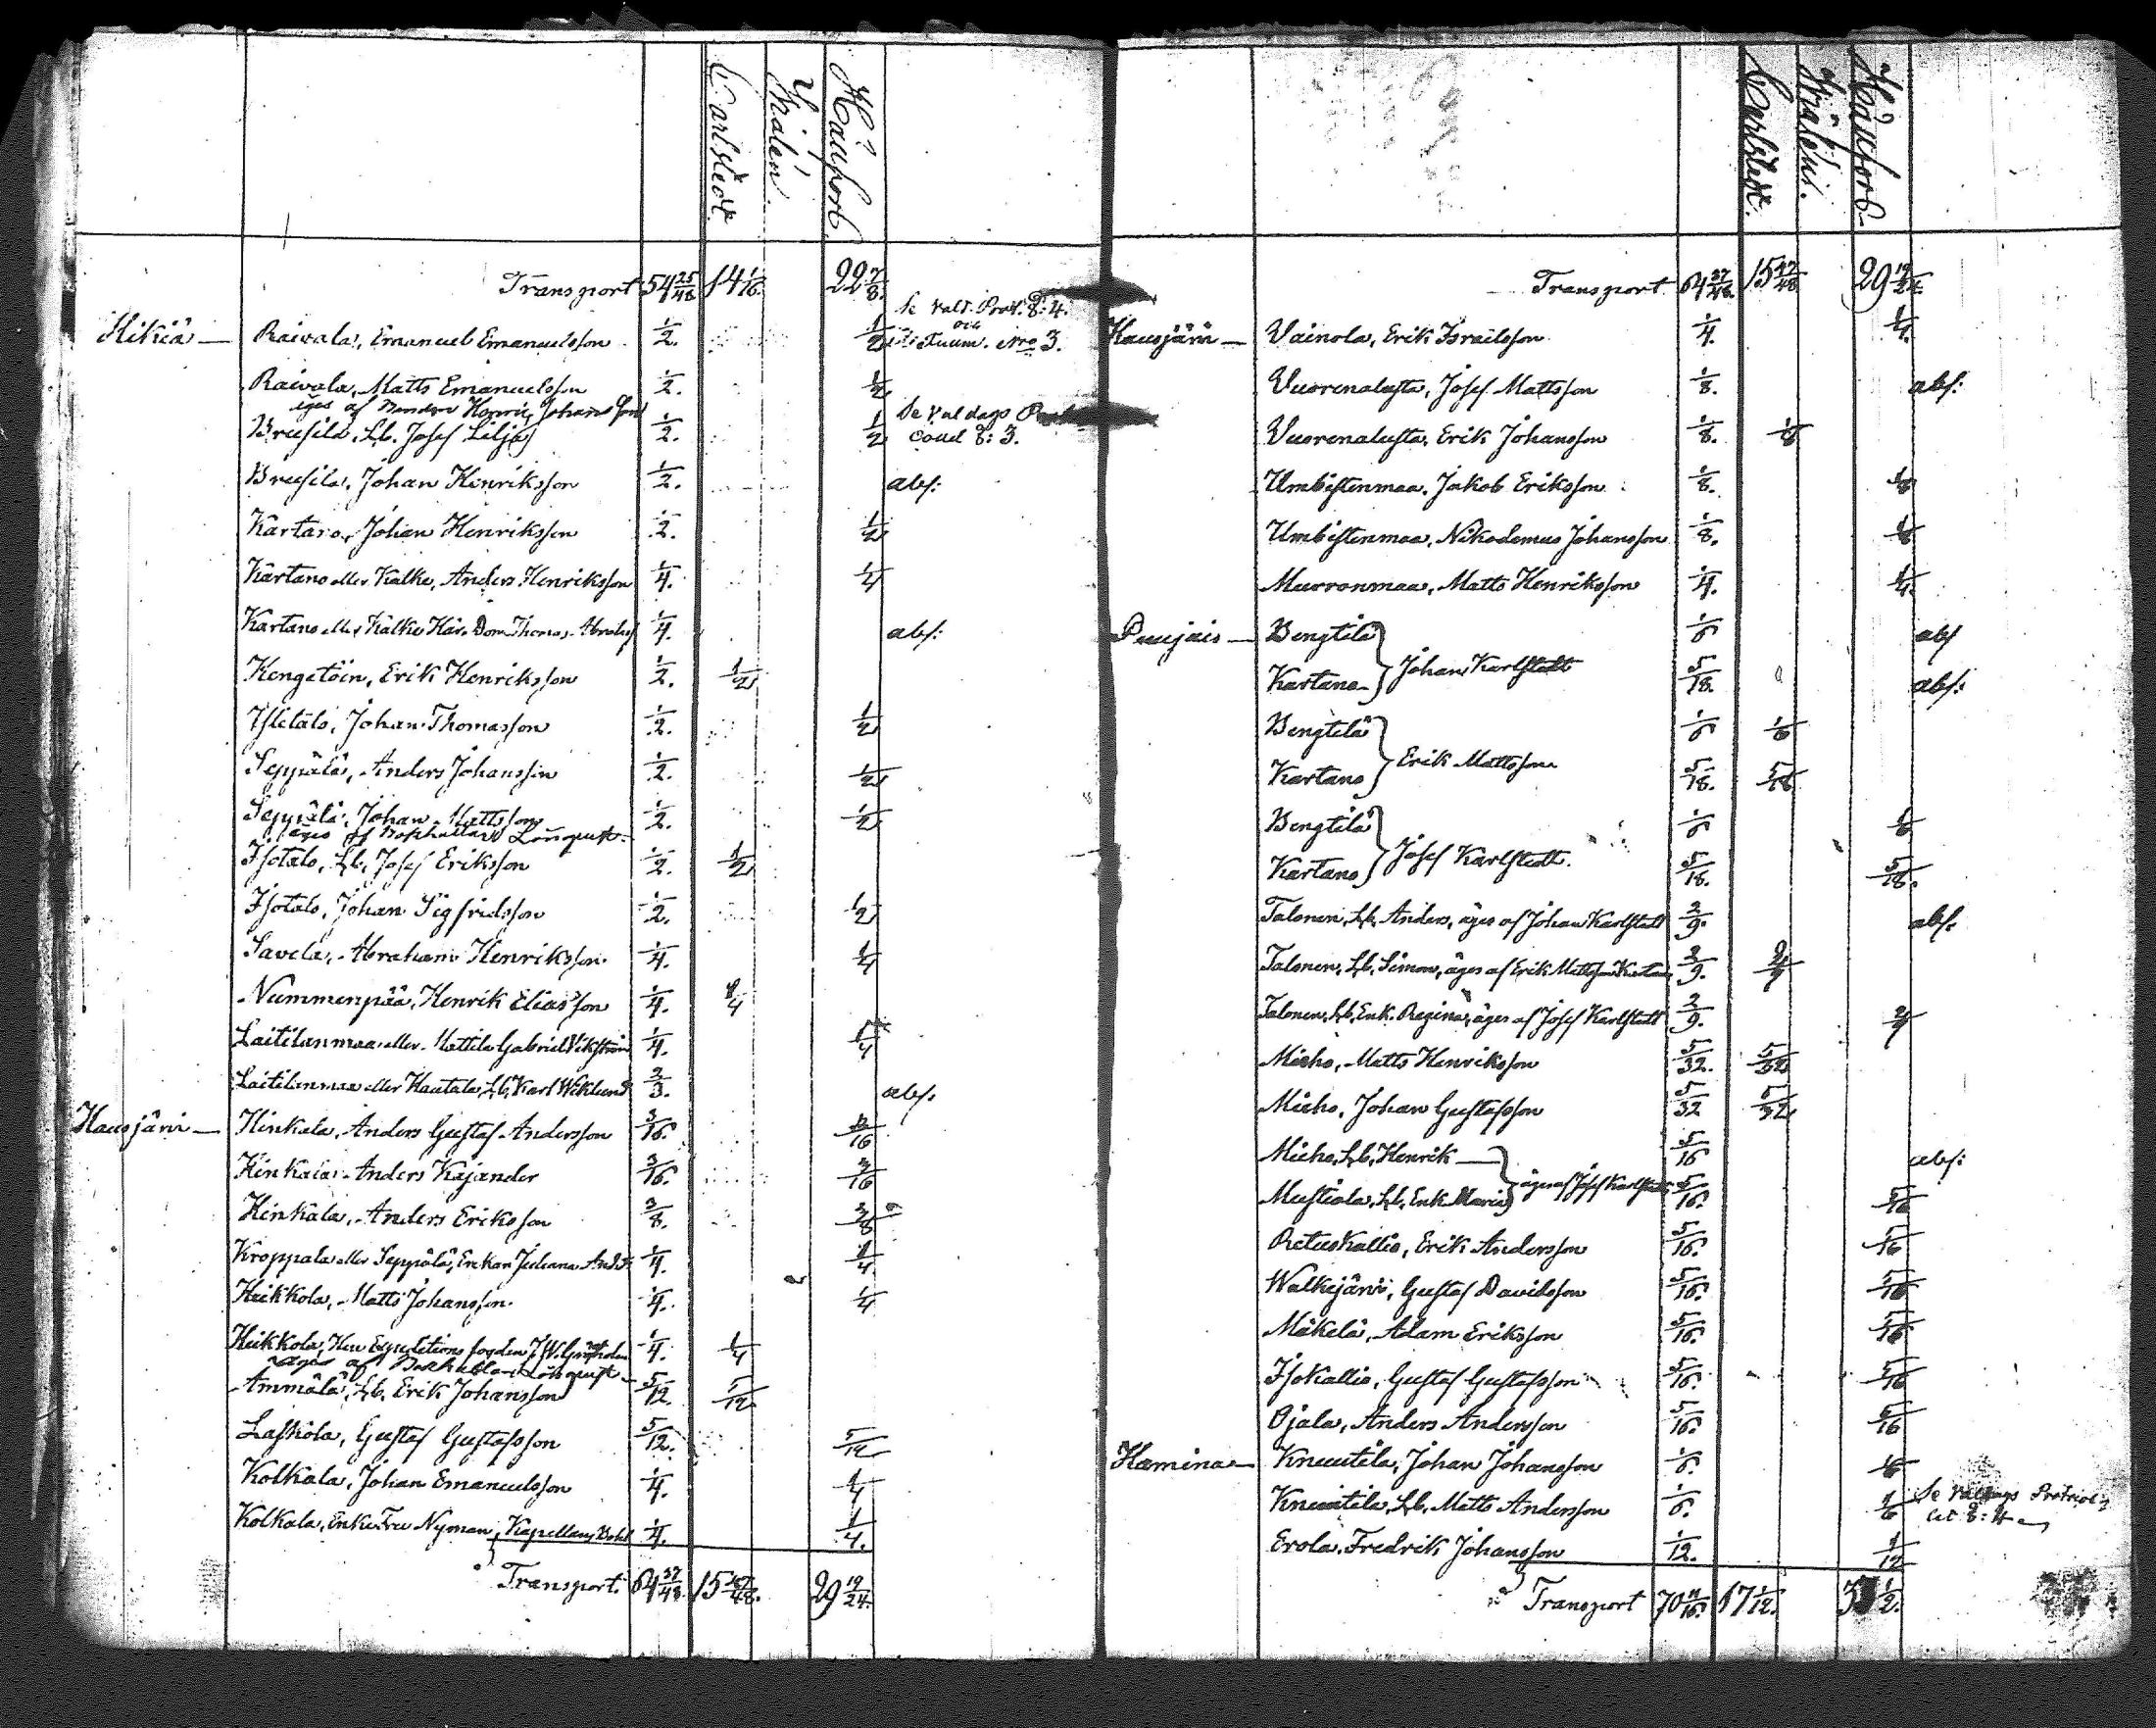 Carlstedt Håkfors
Transport 54 25/48 14 1/16. 22 7/8.
Se Vald. Prot. §: 4.
Hikiä — Raivala, Emanuel Emanuelsson 1/2. 1/2 No 3.
Raivala, Matts Emanuelsson 1/2. 1/2
äges af Henric Johansson
Brusila, Lb. Josef Lilja 1/2. 1/2 Se Valdags
§: 3.
Brusila, Johan Henriksson 1/2. abs:
Kartano, Johan Henriksson 1/2. 1/2
Kartano eller Kälke, Anders Henriksson 1/4. 1/4
Kartano eller Kälke Thomas 1/4. abs:
Kengetöin, Erik Henriksson 1/2. 1/2
Ylletalo, Johan Thomasson 1/2. 1/2
Seppälä, Anders Johansson 1/2. 1/2
Seppälä, Johan Mattsson 1/2. 1/2
äges af Bokhållare Lönqvist
Isotalo, Lb, Josef Eriksson 1/2. 1/2
Isotalo, Johan Sigfridsson 1/2. 1/2
Savela, Abraham Henriksson 1/4. 1/4
Nummenpää, Henrik Eliasson 1/4. 1/4
Laitilanmaa eller Mattila Gabriel Vikström 1/4. 1/4
Laitilanmaa eller Hautala, Lb, Karl Wiklund 2/3. abs.
Hausjärvi — Hinkala, Anders Gustaf Andersson 3/16. 3/16
Hinkala, Anders Kajander 3/16. 3/16
Hinkala, Anders Eriksson 3/8. 3/8
Kroppala eller Seppälä, Enkan Juliana 1/4. 1/4
Heikkola, Matts Johansson 1/4. 1/4
Heikkola, Herr Expeditions fogden 1/4. 1/4
äges af Bokhållare Lönqvist
Ammälä, Lb, Erik Johansson 5/12. 5/12
Laskola, Gustaf Gustafsson 5/12. 5/12
Kolkala, Johan Emanuelsson 1/4. 1/4
Kolkala, Enke Fru Nyman, Kapellans Bohl 1/4. 1/4.
Transport. 64 37/48 15 47/48. 29 19/24.
Carlstedt. Håkfors
Transport 64 37/48. 15 47/48 29 19/24.
Hausjärvi — Vainola, Erik Israelsson 1/4. 1/4.
Vuorenalusta, Josef Mattsson 1/8. abs:
Vuorenalusta, Erik Johansson 1/8. 1/8
Umbistenmaa, Jakob Eriksson 1/8. 1/8
Umbistenmaa, Nikodemus Johansson 1/8. 1/8
Murronmaa, Matts Henriksson 1/4. 1/4.
Puujais — Bengtilä 1/6 abs
Kartano } Johan Karlstedt 5/18. abs:
Bengtilä 1/6 1/6
Kartano } Erik Mattsson 5/18. 5/18
Bengtilä 1/6 1/6
Kartano } Josef Karlstedt. 5/18. 5/18.
Talonen, Lb, Anders, äges af Johan Karlstedt 2/9. abs.
Talonen, Lb, Simon, äges af Erik Mattsson Kartano 2/9. 2/9
Talonen, Lb, Enk. Regina, äges af Josef Karlstedt 2/9. 2/9
Mieho, Matts Henriksson 5/32. 5/32
Mieho, Johan Gustafsson 5/32 5/32
Mieho, Lb, Henrik — 5/16 abs:
Mustiala, Lb, Enk. Maria } äges af Josef Karlstedt 5/16. 5/16
Retuskallio, Erik Andersson 5/16. 5/16
Walkejärvi, Gustaf Davidsson 5/16. 5/16
Mäkelä, Adam Eriksson 5/16. 5/16
Isokallio, Gustaf Gustafsson 5/16. 5/16
Ojala, Anders Andersson 5/16. 5/16
Hamina — Knuutila, Johan Johansson 1/6. 1/6
Knuutila, Lb, Matts Andersson 1/6. 1/6 Se Valdags
§: 4
Erola, Fredrik Johansson 1/12. 1/12
Transport 70 11/16. 17 1/12.